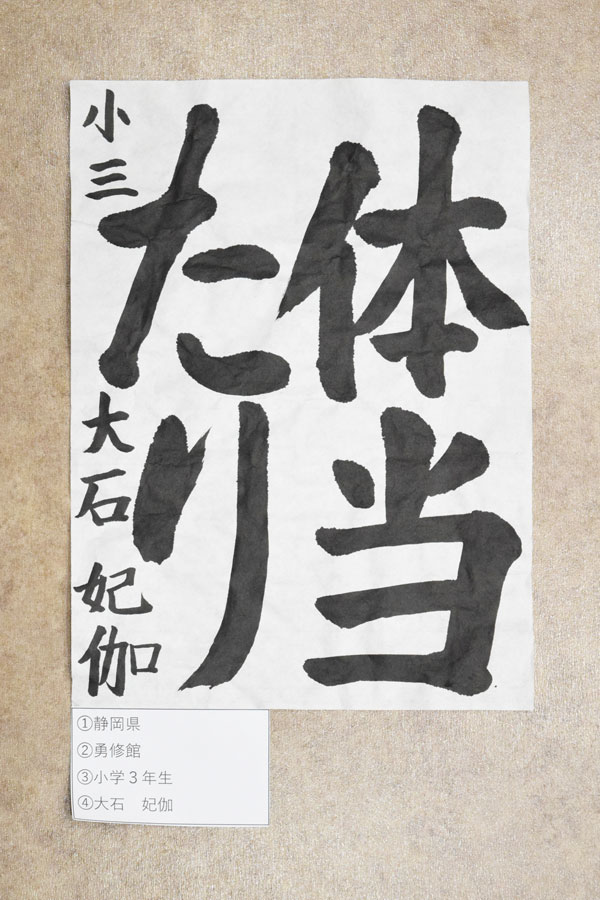 体当
たり
小三 大石 妃伽
①静岡県
②勇修館
③小学３年生
④大石　妃伽